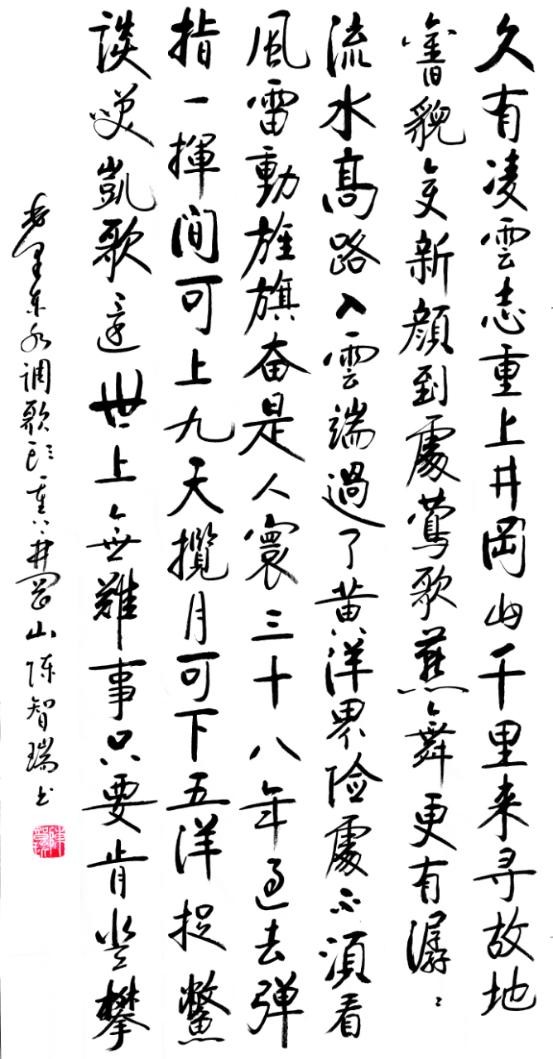 久有凌雲志重上井岡山千里来寻故地
舊貌变新顔到處鶯歌燕舞更有潺〻
流水高路入雲端過了黄洋界险處不須看
風雷動旌旗奋是人寰三十八年过去弹
指一揮间可上九天攬月可下五洋捉鱉
談笑凱歌還世上無難事只要肯登攀
毛泽东水调歌头重上井冈山陈智瑞书